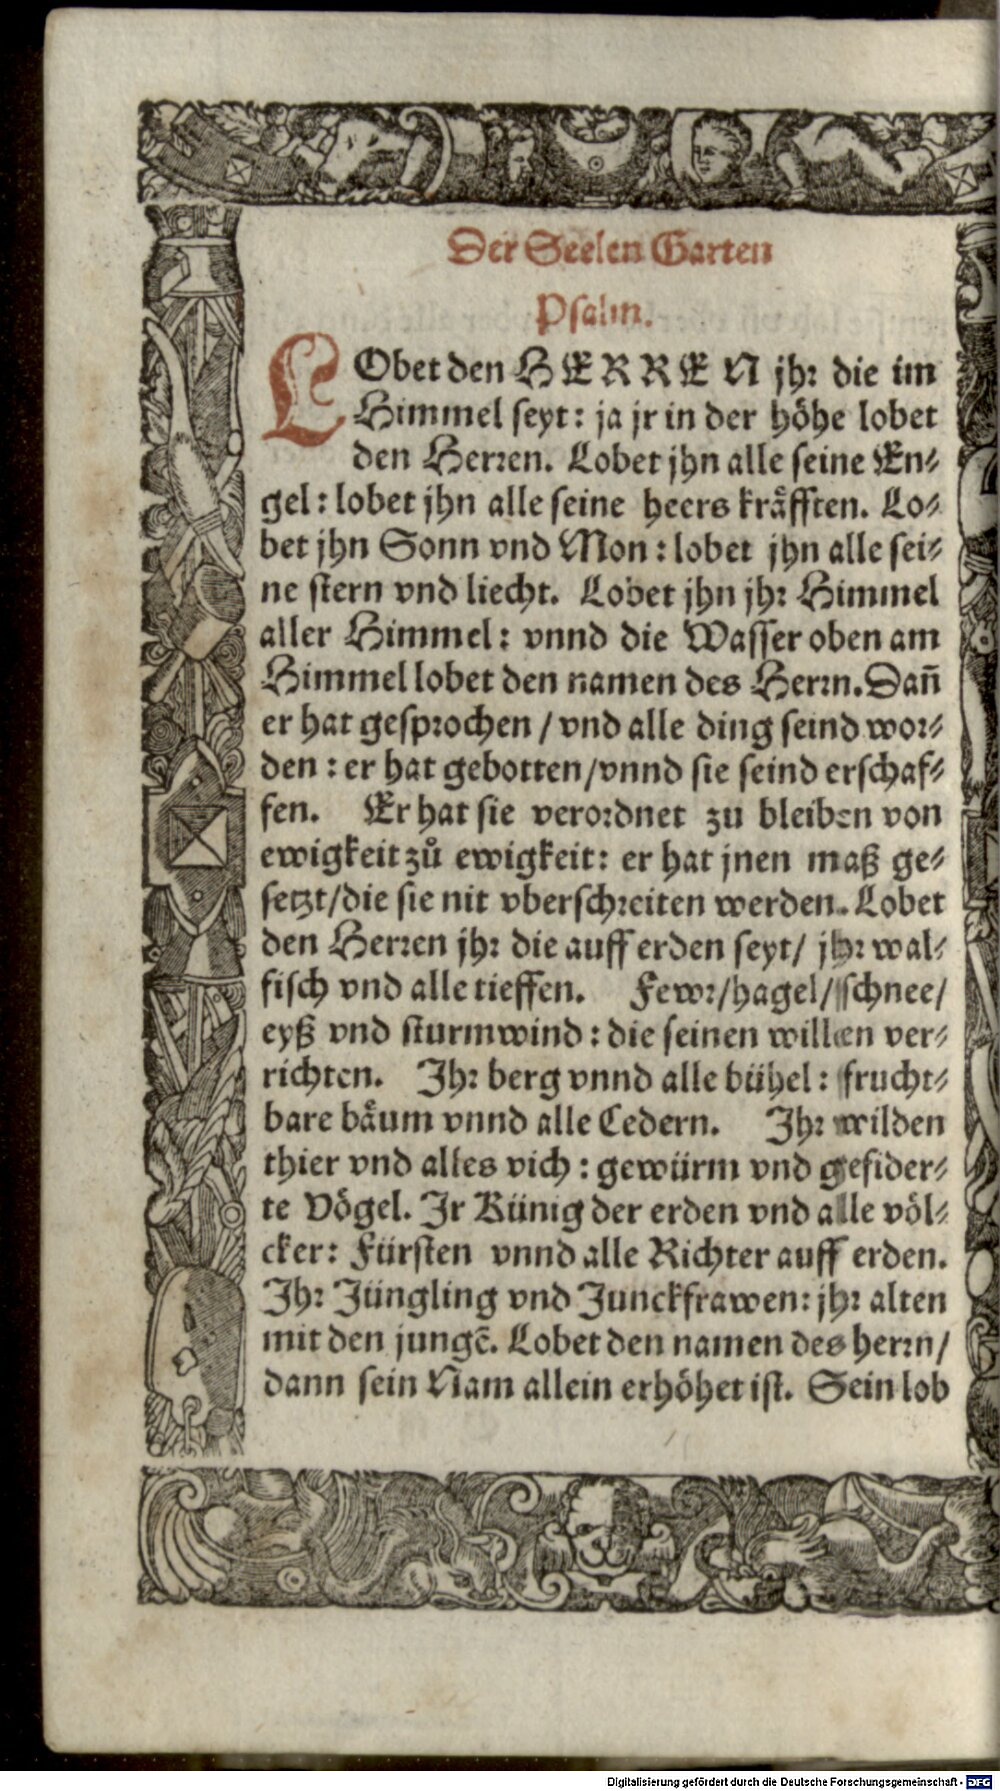 Der Seelen Garten
Psalm.
LObet den HERREN jhr die im
Himmel seyt: ja jr in der höhe lobet
den Herren. Lobet jhn alle seine En⸗
gel: lobet jhn alle seine heers kräfften. Lo⸗
bet jhn Sonn vnd Mon: lobet jhn alle sei⸗
ne stern vnd liecht. Lobet jhn jhr Himmel
aller Himmel: vnnd die Wasser oben am
Himmel lobet den namen des Herrn. Dañ
er hat gesprochen / vnd alle ding seind wor⸗
den: er hat gebotten/vnnd sie seind erschaf⸗
fen. Er hat sie verordnet zu bleiben von
ewigkeit zů ewigkeit: er hat jnen maß ge⸗
setzt/die sie nit vberschreiten werden. Lobet
den Herren jhr die auff erden seyt/ jhr wal⸗
fisch vnd alle tieffen. Fewr/hagel/schnee/
eyß vnd sturmwind: die seinen willen ver⸗
richten. Jhr berg vnnd alle bühel: frucht⸗
bare bäum vnnd alle Cedern. Jhr wilden
thier vnd alles vich: gewürm vnd gefider⸗
te Vögel. Jr Künig der erden vnd alle völ⸗
cker: Fürsten vnnd alle Richter auff erden.
Jhr Jüngling vnd Junckfrawen: jhr alten
mit den jungē. Lobet den namen des herrn/
dann sein Nam allein erhöhet ist. Sein lob
Digitalisierung gefördert durch die Deutsche Forschungsgemeinschaft - DFG